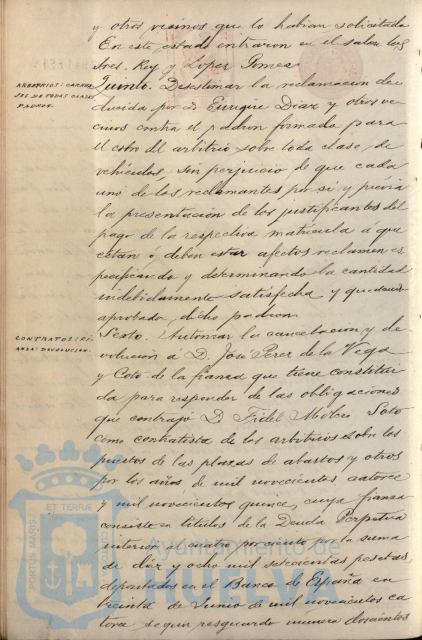 y otros vecinos que lo habian solicitado
En este estado entraron en el salon los
Sres. Rey y Lopez Gomez
ARBITRIOS: CARRUA
JES DE TODAS CLASES
PADRON.
Quinto. Desestimar la reclamacion de
ducida por D. Enrique Diaz y otros ve
cinos contra el padron formado para
el cobro del arbitrio sobre toda clase de
vehiculos, sin perjuicio de que cada
uno de los reclamantes por si y previa
la presentacion de los justificantes del
pago de la respectiva matricula a que
estan ó deben estar afectos reclamen es
pecificando y determinando la cantidad
indebidamente satisfecha y quedando
aprobado dicho padron
CONTRATOS: FI-
ANZA: DEVOLUCION.
Sexto. Autorizar la cancelacion y de
volucion a D. José Perez de la Vega
y Coto de la fianza que tiene constitui
da para responder de las obligaciones
que contrajó D. Fidel Soto
como contratista de los arbitrios sobre los
puestos de las plazas de abastos y otros
por los años de mil novecientos catorce
y mil novecientos quince, cuya fianza
consiste en titulos de la Deuda Perpetua
interior al cuatro por ciento por la suma
de diez y ocho mil seiscientas pesetas,
depositados en el Banco de España en
treinta de Junio de mil novecientos ca
torce segun resguardo numero doscientos
PORTUS MARIS ET TERRÆ
Ayuntamiento de
HUELVA